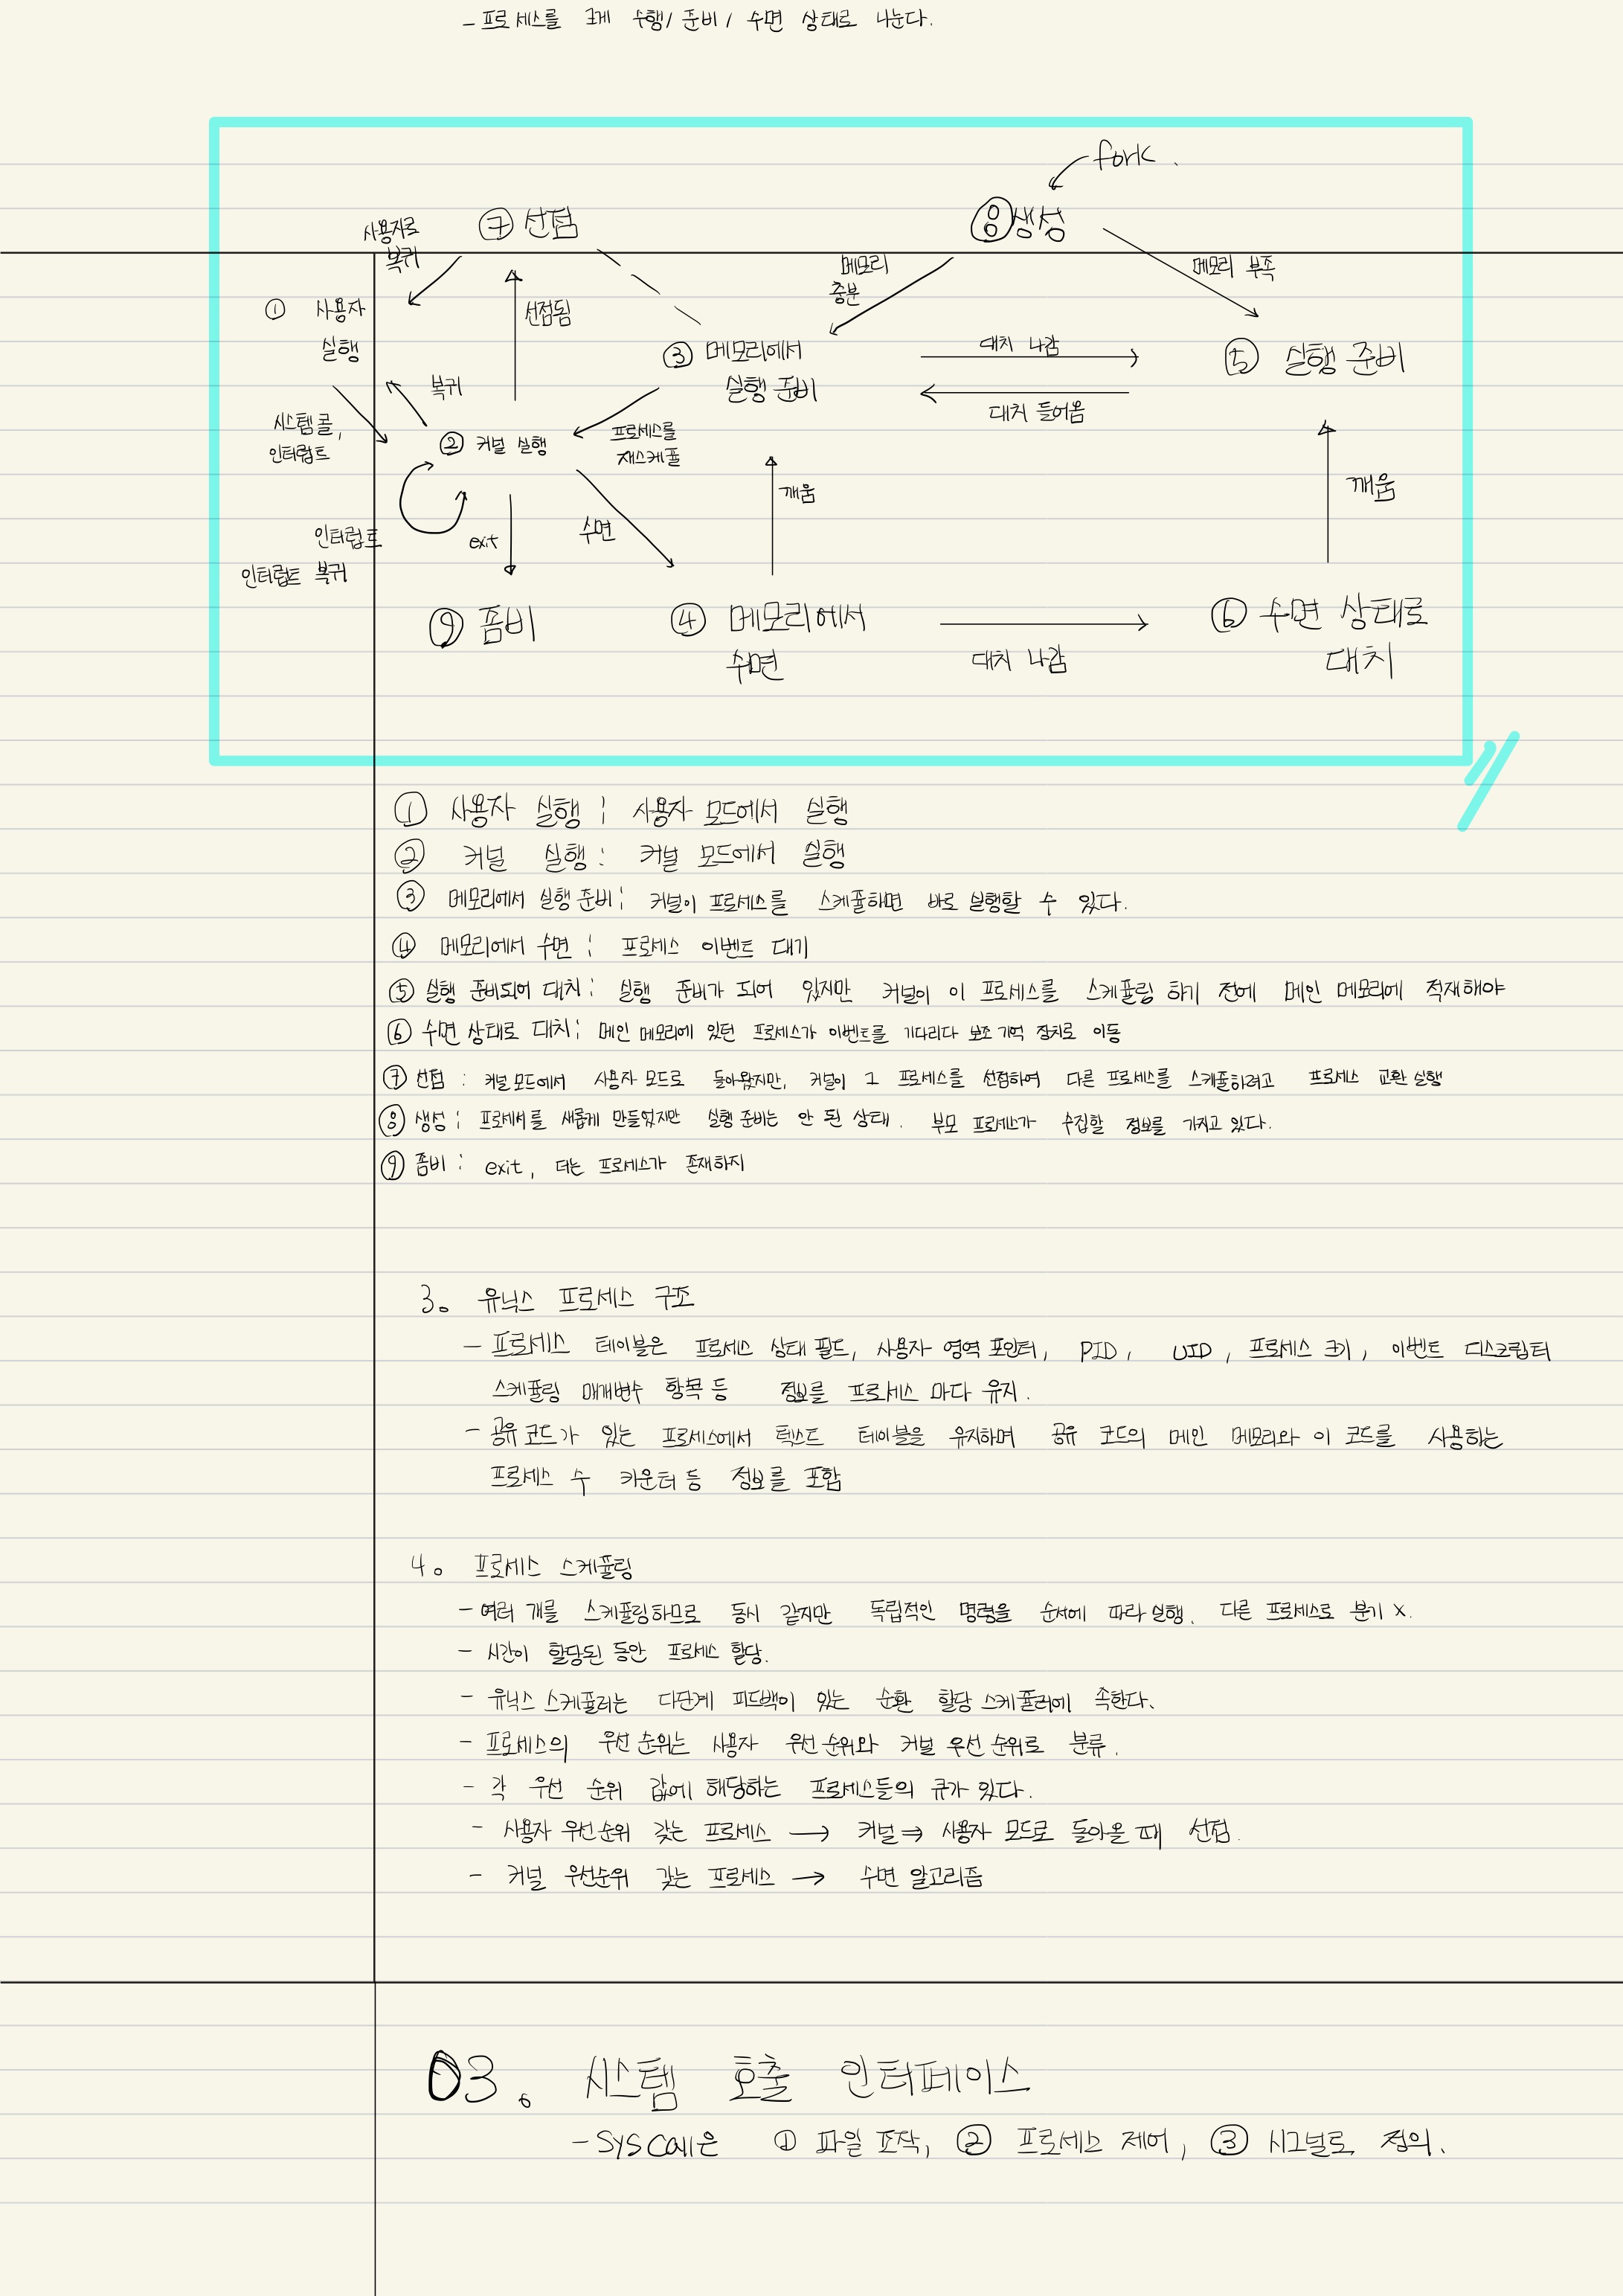 - 프로세스를 크게 수행/ 준비 / 수면 상태로 나눈다.
fork.
⑦ 선점
⑧ 생성
사용자로
복귀
메모리
충분
메모리 부족
① 사용자
실행
선점됨
③ 메모리에서
실행 준비
대치 나감
대치 들어옴
⑤ 실행 준비
복귀
시스템 콜,
인터럽트
② 커널 실행
프로세스를
재스케줄
깨움
깨움
인터럽트
인터럽트 복귀
exit
수면
⑨ 좀비
④ 메모리에서
수면
대치 나감
⑥ 수면 상태로
대치
① 사용자 실행 : 사용자 모드에서 실행
② 커널 실행 : 커널 모드에서 실행
③ 메모리에서 실행 준비 : 커널이 프로세스를 스케줄하면 바로 실행할 수 있다.
④ 메모리에서 수면 : 프로세스 이벤트 대기
⑤ 실행 준비되어 대치 : 실행 준비가 되어 있지만 커널이 이 프로세스를 스케줄링 하기 전에 메인 메모리에 적재해야
⑥ 수면 상태로 대치 : 메인 메모리에 있던 프로세스가 이벤트를 기다리다 보조 기억 장치로 이동
⑦ 선점 : 커널 모드에서 사용자 모드로 돌아왔지만, 커널이 그 프로세스를 선점하여 다른 프로세스를 스케줄하려고 프로세스 교환 실행
⑧ 생성 : 프로세서를 새롭게 만들었지만 실행 준비는 안 된 상태. 부모 프로세스가 수집할 정보를 가지고 있다.
⑨ 좀비 : exit, 더는 프로세스가 존재하지
3. 유닉스 프로세스 구조
- 프로세스 테이블은 프로세스 상태 필드, 사용자 영역 포인터, PID, UID, 프로세스 크기, 이벤트 디스크립터
스케줄링 매개변수 항목 등 정보를 프로세스 마다 유지.
- 공유 코드가 있는 프로세스에서 텍스트 테이블을 유지하며 공유 코드의 메인 메모리와 이 코드를 사용하는
프로세스 수 카운터 등 정보를 포함
4. 프로세스 스케줄링
- 여러 개를 스케줄링하므로 동시 같지만 독립적인 명령을 순서에 따라 실행. 다른 프로세스로 분기 X.
- 시간이 할당된 동안 프로세스 할당.
- 유닉스 스케줄러는 다단계 피드백이 있는 순환 할당 스케줄러에 속한다.
- 프로세스의 우선 순위는 사용자 우선 순위와 커널 우선 순위로 분류.
- 각 우선 순위 값에 해당하는 프로세스들의 큐가 있다.
- 사용자 우선순위 갖는 프로세스 → 커널 ⇒ 사용자 모드로 돌아올 때 선점.
- 커널 우선순위 갖는 프로세스 → 수면 알고리즘
03. 시스템 호출 인터페이스
- sys call은 ① 파일 조작, ② 프로세스 제어, ③ 시그널로 정의.